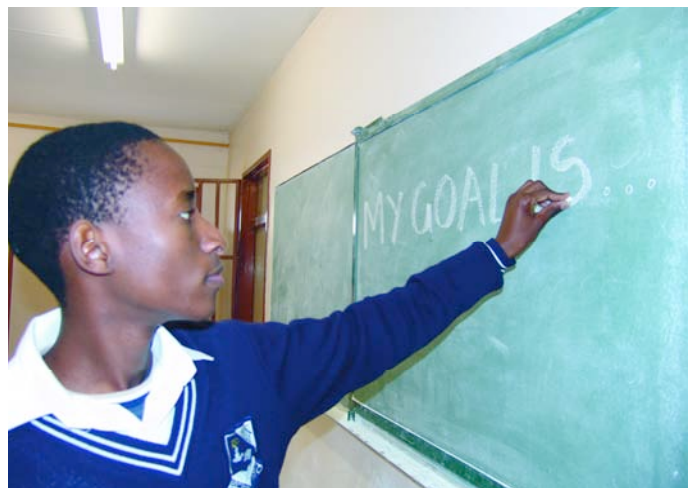 MY GOAL IS...